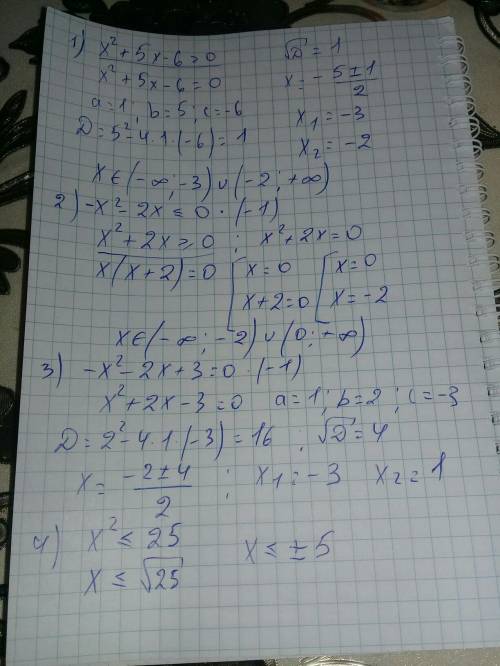 1) x² + 5x - 6 > 0   √D = 1
x² + 5x - 6 = 0   x = - 5 ± 1 / 2
a = 1 ; b = 5 ; c = -6   x₁ = -3
D = 5² - 4 · 1 · (-6) = 1   x₂ = -2
x ∈ (-∞ ; -3) ∪ (-2 ; +∞)
2) -x² - 2x ≤ 0 · (-1)
x² + 2x ≥ 0 ; x² + 2x = 0
x(x + 2) = 0 [ x = 0 [ x = 0
x + 2 = 0   x = -2
x ∈ (-∞ ; -2) ∪ (0 ; +∞)
3) -x² - 2x + 3 = 0 · (-1)
x² + 2x - 3 = 0   a = 1 ; b = 2 ; c = -3
D = 2² - 4 · 1 · (-3) = 16 ; √D = 4
x = -2 ± 4 / 2 ; x₁ = -3   x₂ = 1
4) x² ≤ 25   x ≤ ± 5
x ≤ √25